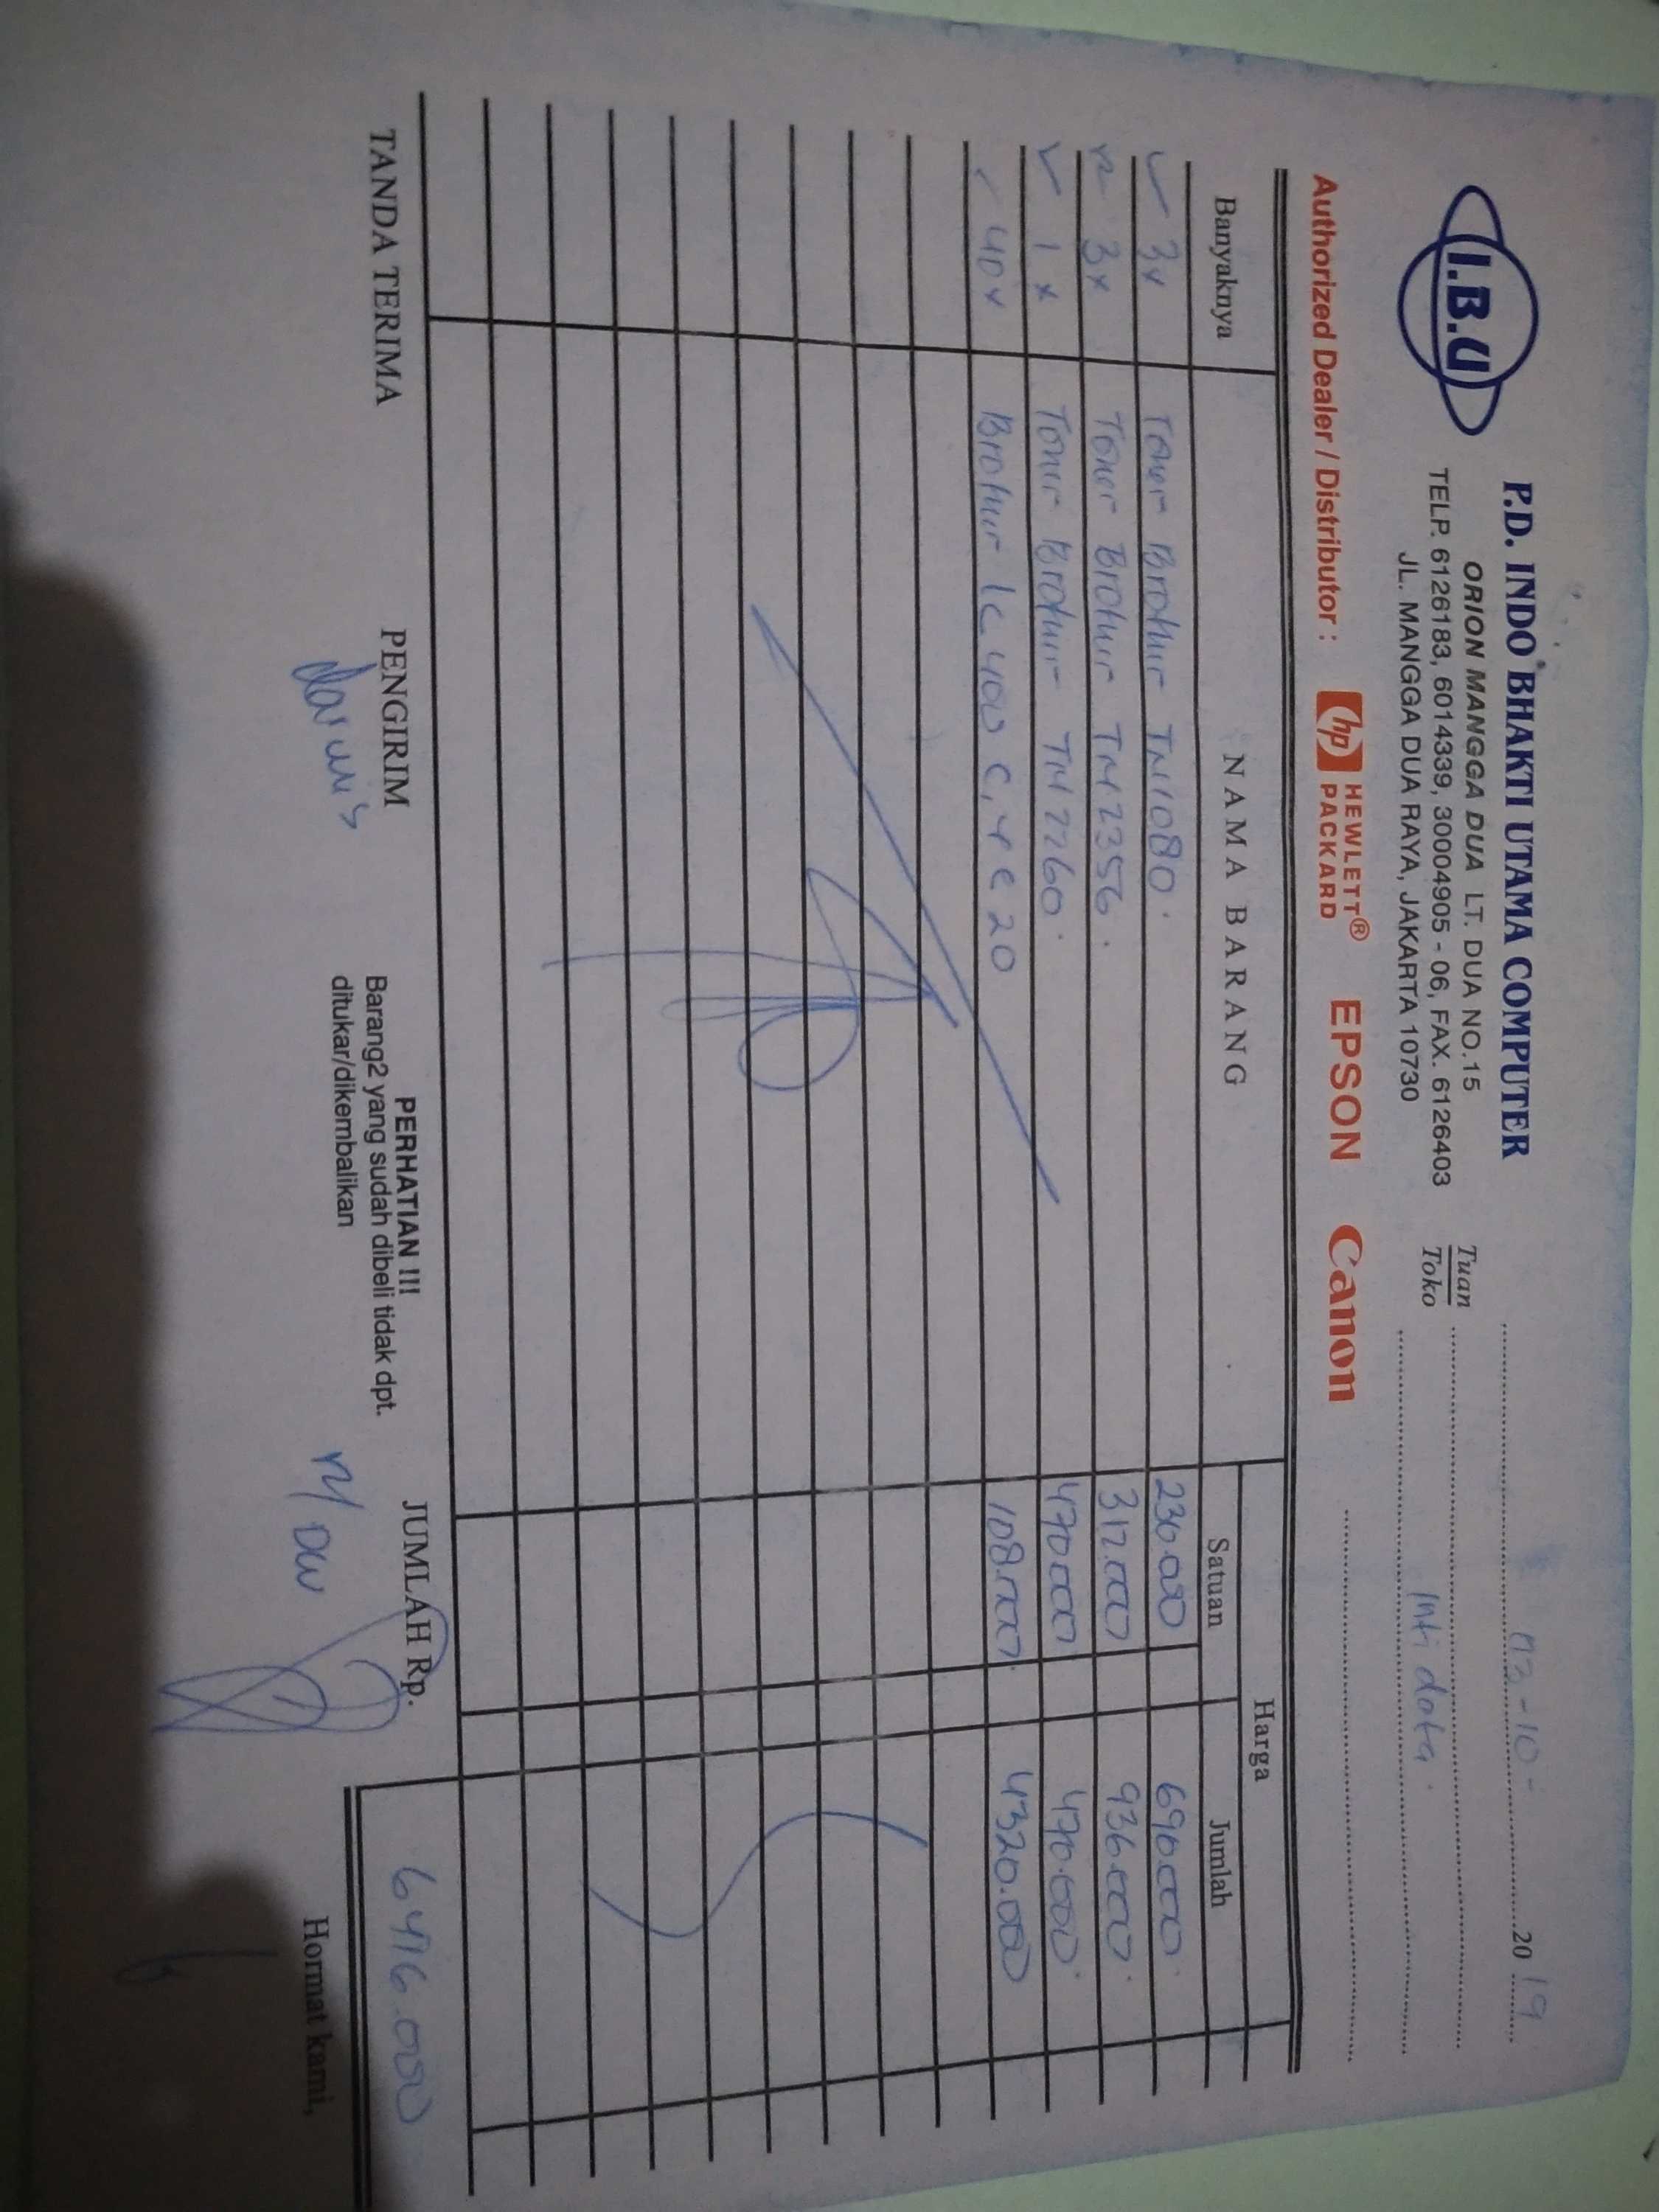 I.B.U
P.D. INDO BHAKTI UTAMA COMPUTER
ORION MANGGA DUA LT. DUA NO.15
TELP. 6126183, 6014339, 30004905 - 06, FAX. 6126403
JL. MANGGA DUA RAYA, JAKARTA 10730
-10- 20 19
Tuan
Toko
Inti data
Authorized Dealer / Distributor : hp HEWLETT® PACKARD EPSON Canon
Banyaknya NAMA BARANG Harga
Satuan Jumlah
3x Toner Brother TN1080. 230.000 690.000
3x Toner Brother TN 2356. 312.000 936.000
1x Toner Brother TN 2260. 470.000 470.000
40x Brother lc 400 C, Y 20 108.000 4320.000
TANDA TERIMA PENGIRIM PERHATIAN !!! JUMLAH Rp. 6416.000
Barang2 yang sudah dibeli tidak dpt.
ditukar/dikembalikan
Hormat kami,